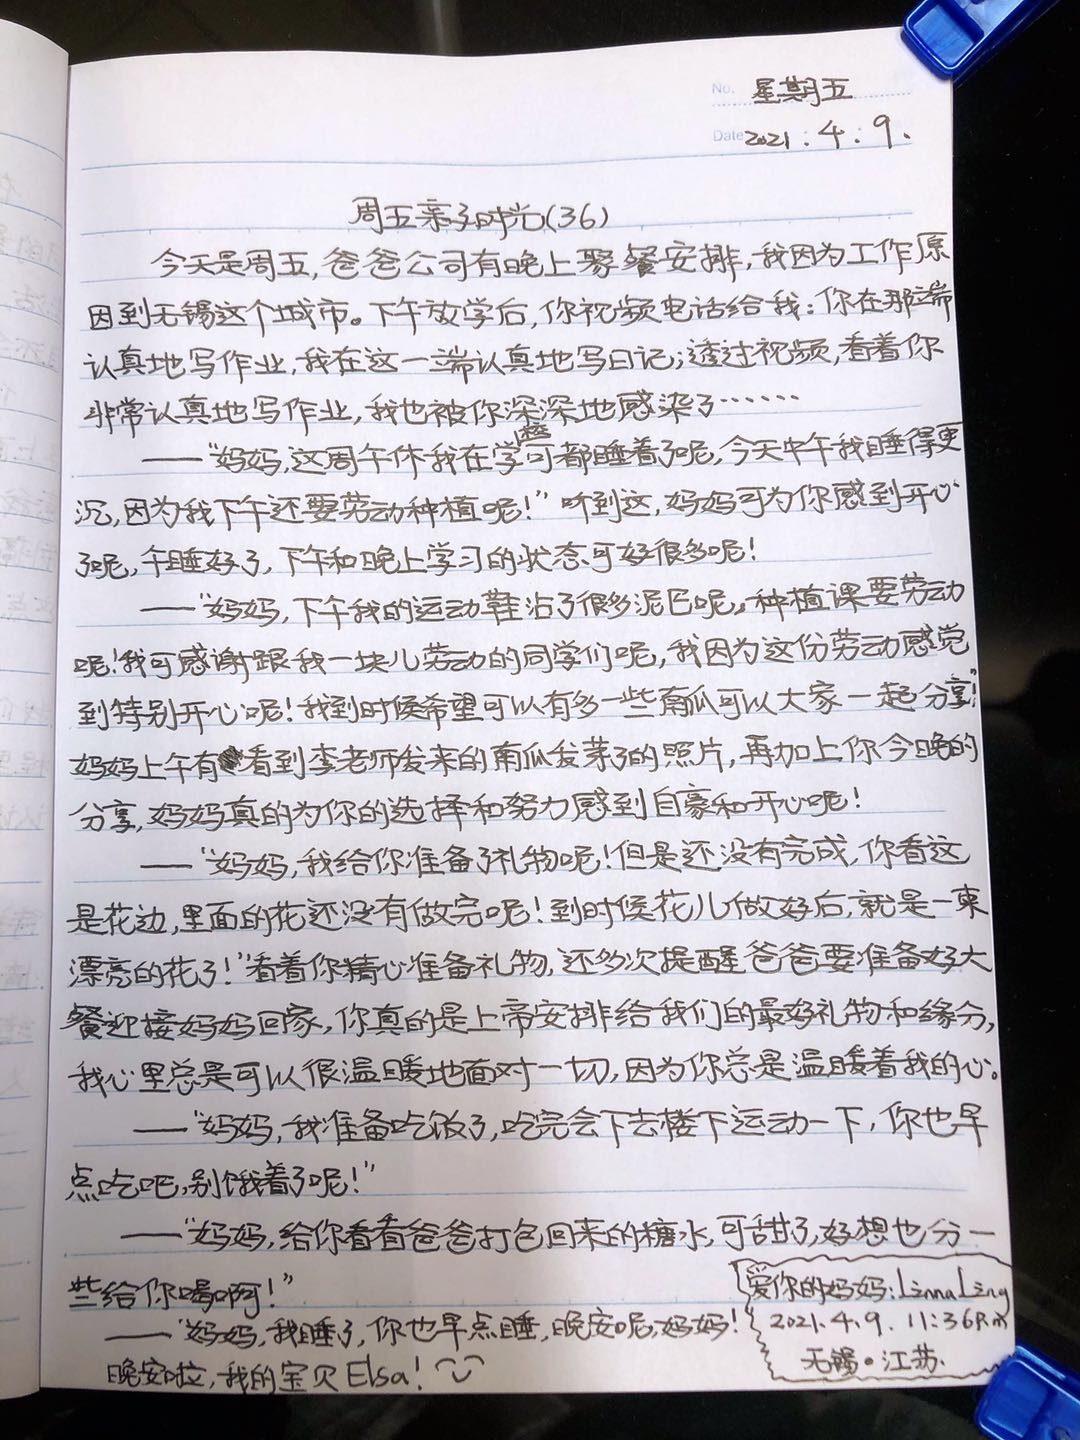 No. 星期五
Date 2021.4.9.
周五亲子时光(36)
今天是周五,爸爸公司有晚上聚餐安排,我因为工作原
因到无锡这个城市。下午放学后,你视频电话给我:你在那端
认真地写作业,我在这一端认真地写日记;透过视频,看着你
非常认真地写作业,我也被你深深地感染了……
——“妈妈,这周午休我在学校可都睡着了呢,今天中午我睡得更
沉,因为我下午还要劳动种植呢!”听到这,妈妈可为你感到开心
了呢,午睡好了,下午和晚上学习的状态可好很多呢!
——“妈妈,下午我的运动鞋沾了很多泥巴呢。种植课要劳动
呢!我可感谢跟我一块儿劳动的同学们呢,我因为这份劳动感觉
到特别开心呢!我到时候希望可以有多一些南瓜可以大家一起分享!”
妈妈上午有看到李老师发来的南瓜发芽了的照片,再加上你今晚的
分享,妈妈真的为你的选择和努力感到自豪和开心呢!
——“妈妈,我给你准备了礼物呢!但是还没有完成,你看这
是花边,里面的花还没有做完呢!到时候花儿做好后,就是一束
漂亮的花了!”看着你精心准备礼物,还多次提醒爸爸要准备好大
餐迎接妈妈回家,你真的是上帝安排给我们的最好礼物和缘分,
我心里总是可以很温暖地面对一切,因为你总是温暖着我的心。
——“妈妈,我准备吃饭了,吃完会下去楼下运动一下,你也早
点吃吧,别饿着了呢!”
——“妈妈,给你看看爸爸打包回来的糖水,可甜了,好想也分一
些给你喝啊!”
——“妈妈,我睡了,你也早点睡,晚安呢,妈妈!
晚安啦,我的宝贝Elsa!
爱你的妈妈:Linna Ling
2021.4.9. 11:36P.m
无锡·江苏.